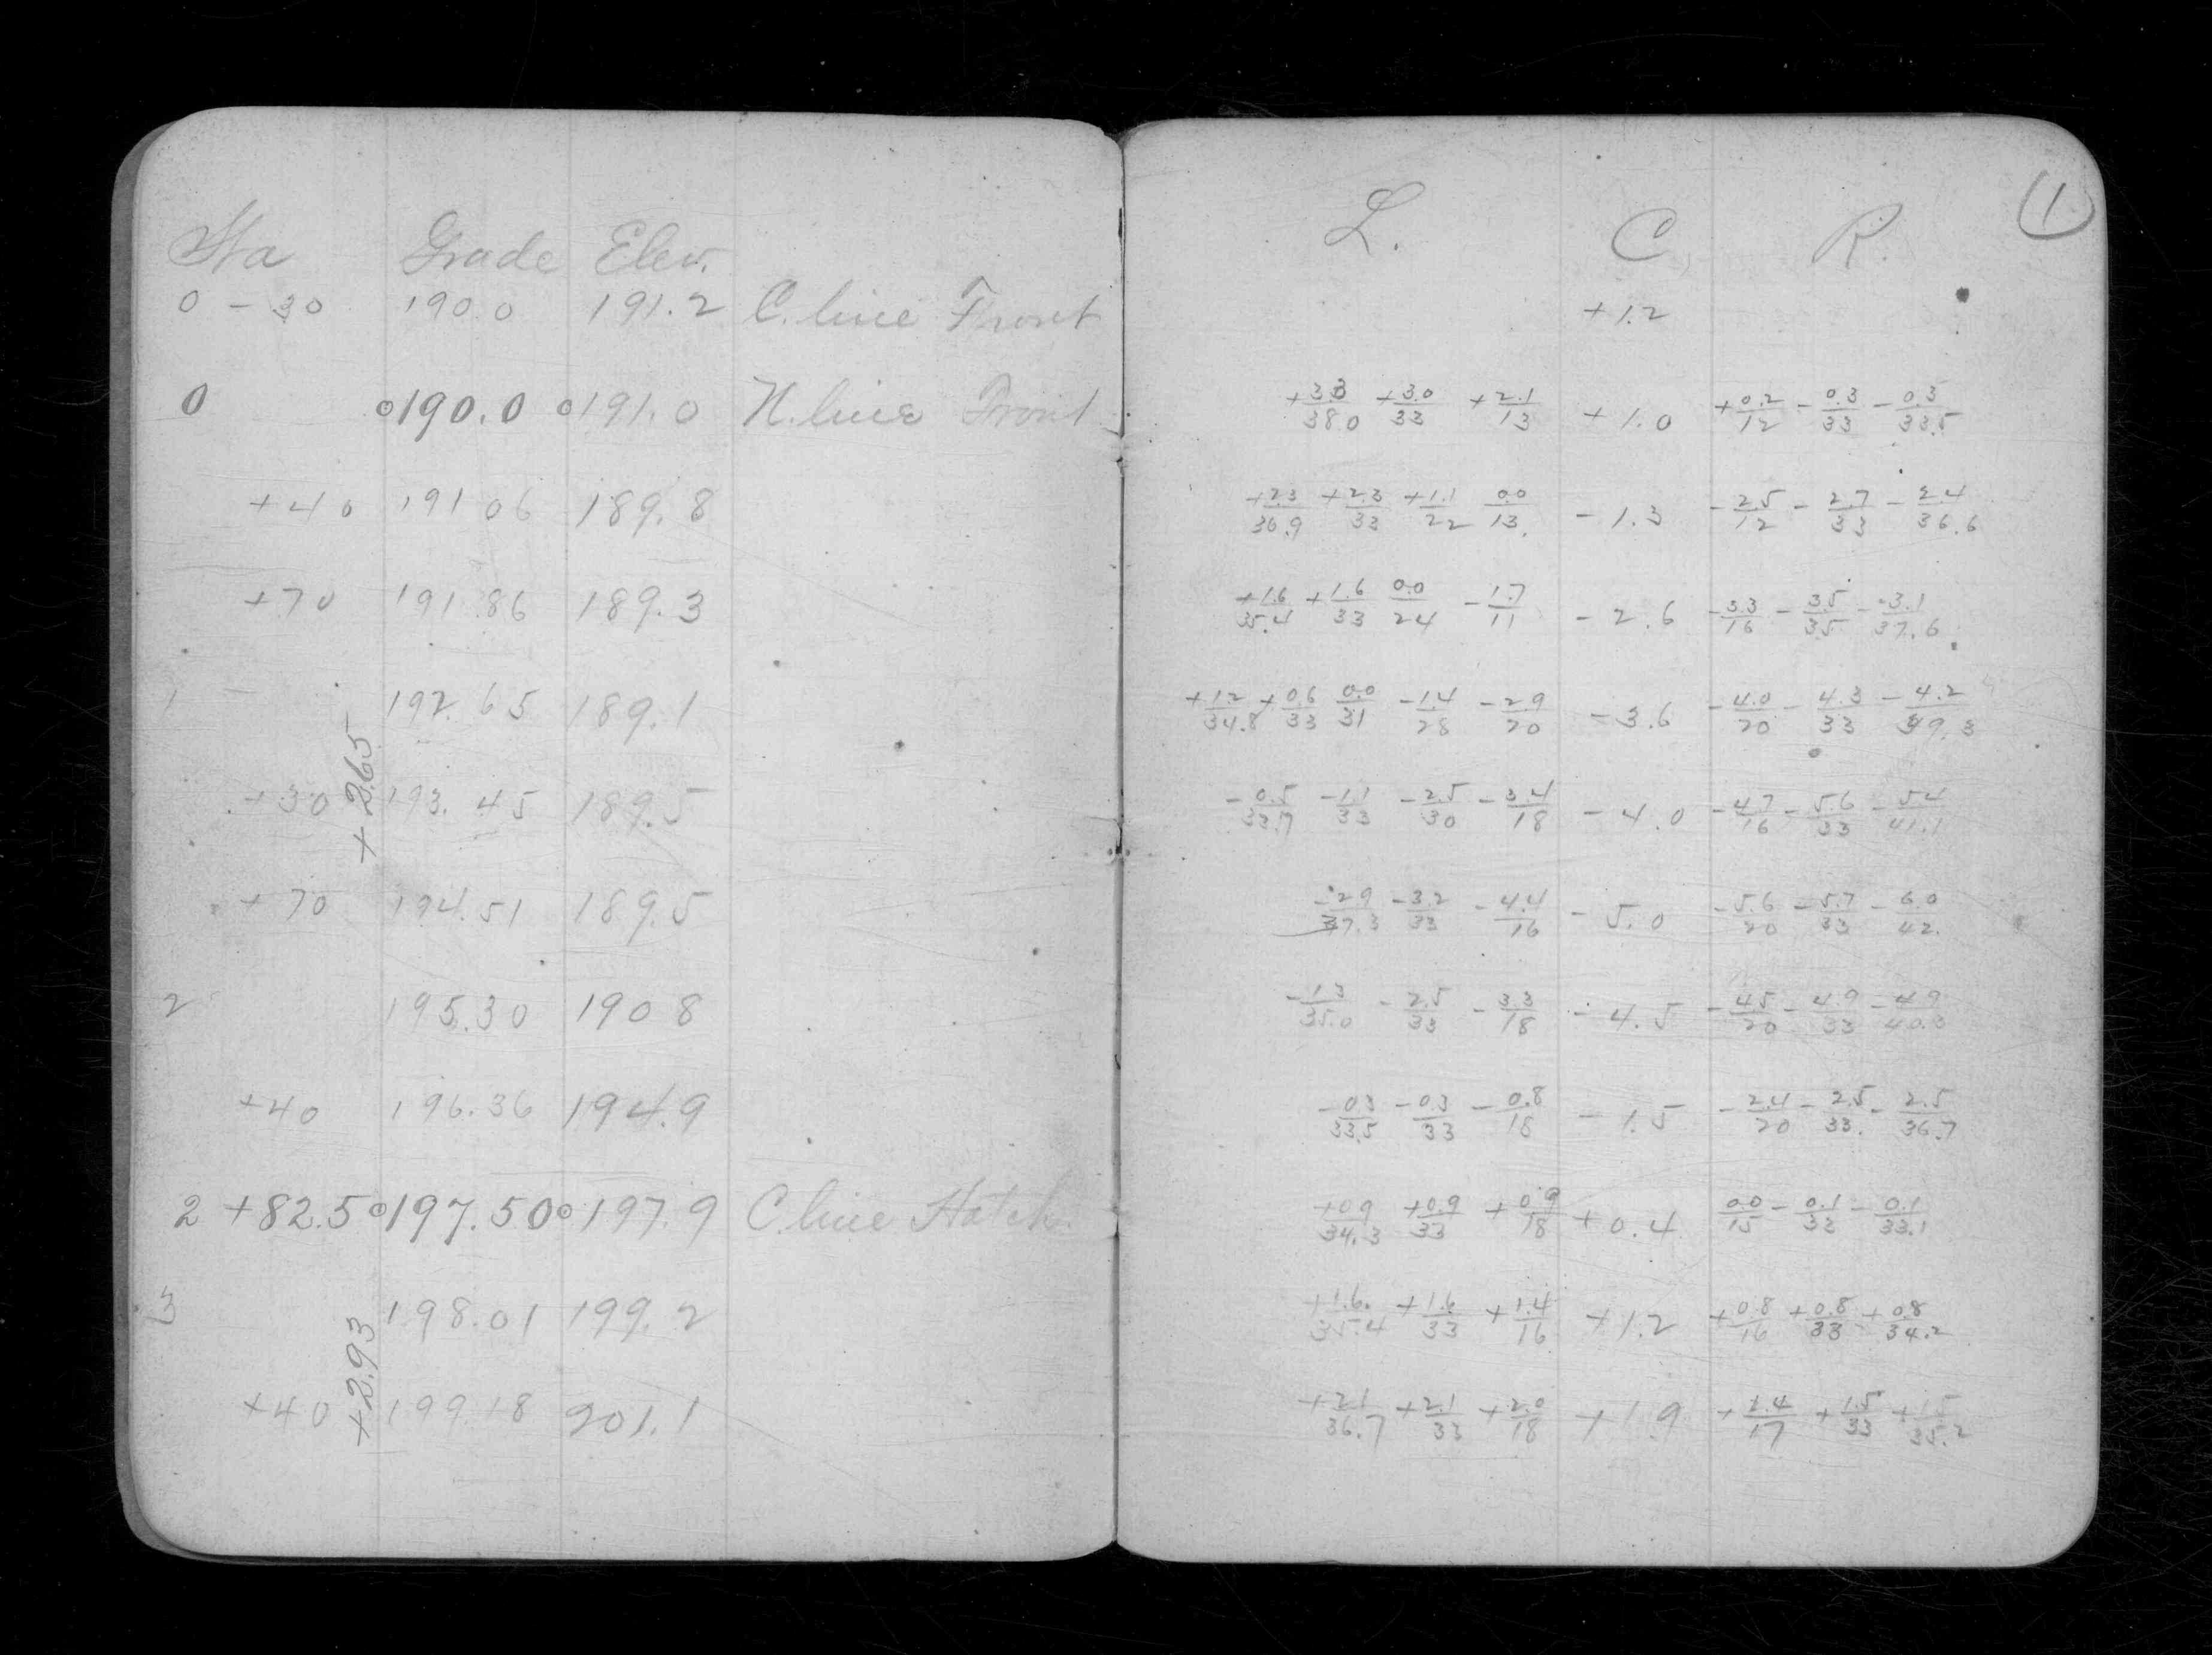 Sta Grade Elev.
0 - 30 190.0 191.2 C. line Front
0 190.0 191.0 N. line Front
+40 191 06 189.8
+70 191.86 189.3
1 192.65 189.1
+2.65
+30 193.45 189.5
+70 194.51 189.5
2 195.30 190 8
+40 196.36 194.9
2 +82.5 197.50 197.9 C. line Hatch.
3 198.01 199.2
+2.93
+40 199 18 201.1
1
L. C. R.
+1.2
+3.3/38.0 +3.0/33 +2.1/13 +1.0 +0.2/12 -0.3/33 -0.3/33.5
+2.3/36.9 +2.3/33 +1.1/22 0.0/13. -1.3 -2.5/12 -2.7/33 -2.4/36.6
+1.6/35.4 +1.6/33 0.0/24 -1.7/11 -2.6 -3.3/16 -3.5/35 -3.1/37.6
+1.2/34.8 +0.6/33 0.0/31 -1.4/28 -2.9/20 -3.6 -4.0/20 -4.3/33 -4.2/39.3
-0.5/33.7 -1.1/33 -2.5/30 -3.4/18 -4.0 -4.7/16 -5.6/33 -5.4/41.1
-2.9/37.3 -3.2/33 -4.4/16 -5.0 -5.6/20 -5.7/33 -6.0/42.
-1.3/35.0 -2.5/33 -3.3/18 -4.5 -4.5/20 -4.9/33 -4.9/40.3
-0.3/33.5 -0.3/33 -0.8/18 -1.5 -2.4/20 -2.5/33. -2.5/36.7
+0.9/34.3 +0.9/33 +0.9/18 +0.4 0.0/15 -0.1/33 -0.1/33.1
+1.6./35.4 +1.6/33 +1.4/16 +1.2 +0.8/16 +0.8/33 +0.8/34.2
+2.1/36.7 +2.1/33 +2.0/18 +1.9 +1.4/17 +1.5/33 +1.5/35.2